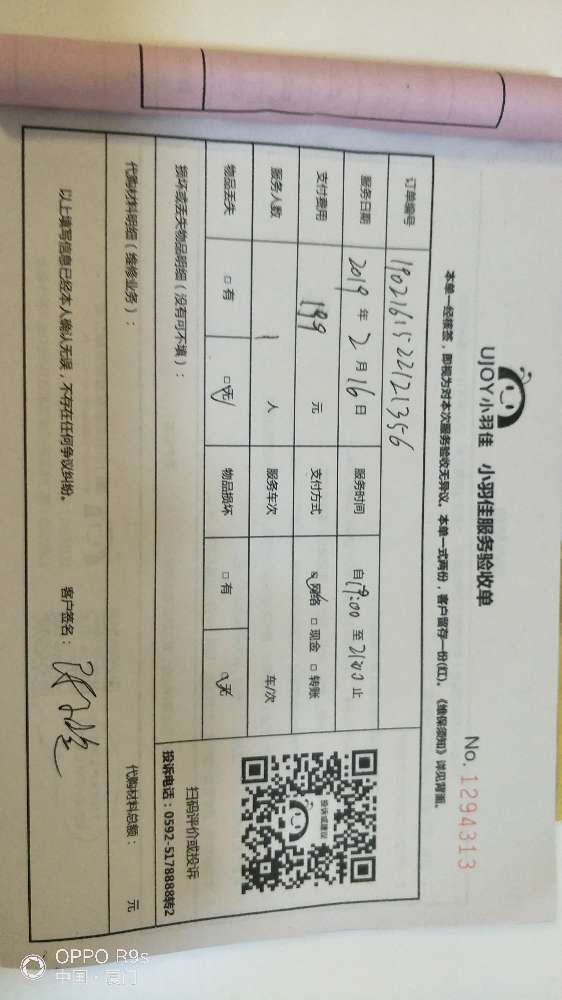 UJOY小羽佳 小羽佳服务验收单
No. 1294313
本单一经核签，即视为对本次服务验收无异议。本单一式两份，客户留存一份(红)。《维保须知》详见背面。
订单编号 1902161522121356
服务日期 2019 年 2 月 16 日 服务时间 自 17:00 至 21:00 止
支付费用 199 元 支付方式 ☑ 网络 □ 现金 □ 转账
服务人数 1 人 服务车次 车/次
物品丢失 □ 有 ☑ 无 物品损坏 □ 有 ☑ 无
投诉或建议
扫码评价或投诉
投诉电话：0592-5178888转2
损坏或丢失物品明细（没有可不填）：
代购材料明细（维修业务）： 代购材料总额： 元
以上填写信息已经本人确认无误，不存在任何争议纠纷。 客户签名：
OPPO R9s
中国·厦门